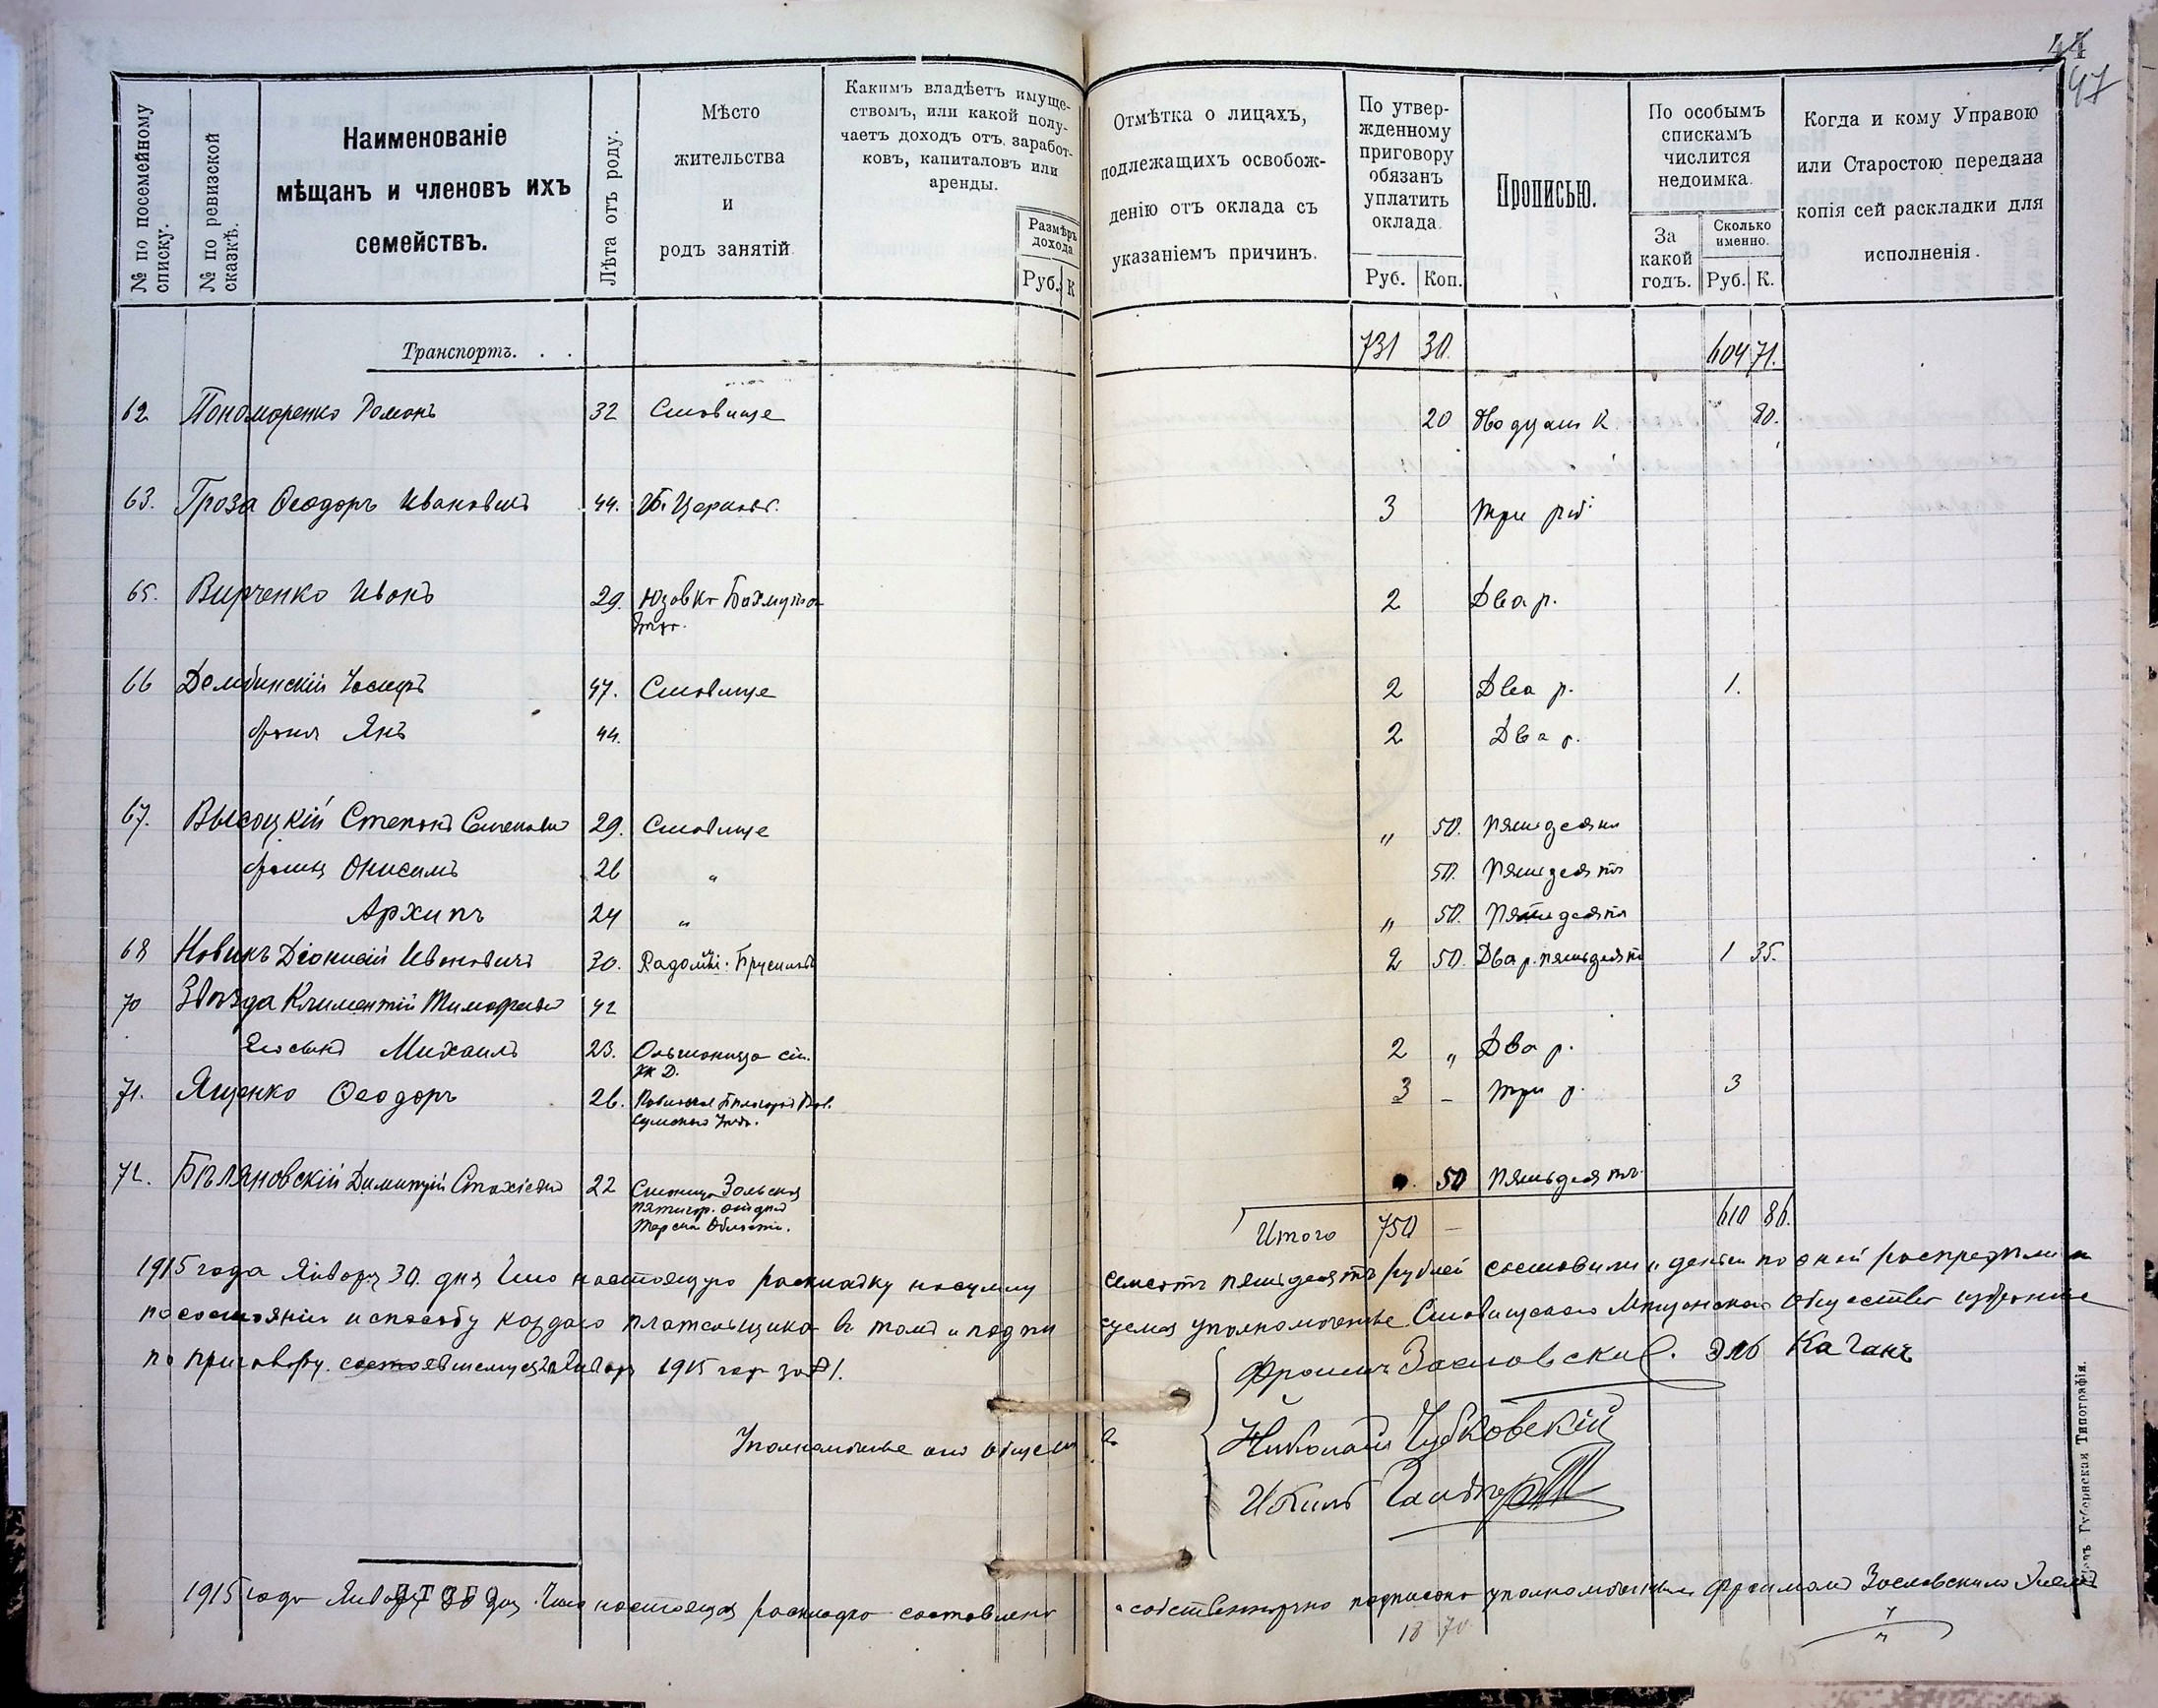 44
47
№ по посемейному списку.
№ по ревизской сказкѣ.
Наименованіе
мѣщанъ и членовъ ихъ
семействъ.
Лѣта отъ роду.
Мѣсто
жительства
и
родъ занятій.
Какимъ владѣетъ имуще-
ствомъ, или какой полу-
чаетъ доходъ отъ заработ-
ковъ, капиталовъ или
аренды.
Размѣръ
дохода
Руб. К
Отмѣтка о лицахъ,
подлежащихъ освобож-
денію отъ оклада съ
указаніемъ причинъ.
По утвер-
жденному
приговору
обязанъ
уплатить
оклада.
Руб. Коп.
Прописью.
По особымъ
спискамъ
числится
недоимка.
За
какой
годъ.
Сколько
именно.
Руб. К.
Когда и кому Управою
или Старостою передана
копія сей раскладки для
исполненія.
Транспортъ. . . 731 30. 604 71.
62 Пономоренко Романъ 32 Ставище 20 Двадцать к. 80.
63. Гроза Ѳеодоръ Ивановичъ 44. Б. Церковь. 3 три руб.
65. Вирченко Иванъ 29. Юзовка Бахмутск 2 Два р.
66 Дембинскій Іосифъ 47. Ставище 2 Два р. 1.
братъ Янъ 44. 2 Два р.
67. Высоцкій Степанъ Семеновъ 29. Ставище " 50. пятьдесять
братья Онисимъ 26 " 50. пятьдесятъ
Архипъ 24 " " 50. пятьдесятъ
68 Новикъ Діонисій Ивановичъ 30. Радомы. Брусиловъ 2 50. Два р. пятьдесятъ 1 35.
70 Звѣзда Климентій Тимофеевъ 42
Его сынъ Михаилъ 23. Ольшаница ст. 2 " Два р.
жк Д.
71. Ященко Ѳеодоръ 26. 3 - три р. 3
72. Бѣляновскій Димитрій Стахіевъ 22 Станица Зольская 50 пятьдесятъ
Пятигор. отдѣла
Терской Области.
Итого 750 — 610 86.
1915 года Января 30. дня Что настоящую раскладку на сумму семсотъ пятьдесятъ рублей составили и деньги по оной распредѣлили
по состоянію и способу каждаго плательщика въ томъ и подпи суемся уполномоченые Ставищскаго Мѣщанскаго Общества избраные
по приговору состоявшемуся Января 1915 года за № 1.
Уполномоченые отъ общества
Фроимъ Засловскій. Эль Каганъ
Николай Чубковскій
Ицко
1915 года Января 30 дня. Что настоящая раскладка составлена и собственноручно подписана уполномоченными Фроимомъ Засловскимъ
ИТОГО
18 70
Губернская Типографія.